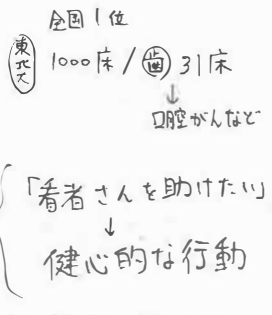 全国1位
東北大 1000床/歯 31床
↓
口腔がんなど
「看者さんを助けたい」
↓
健心的な行動